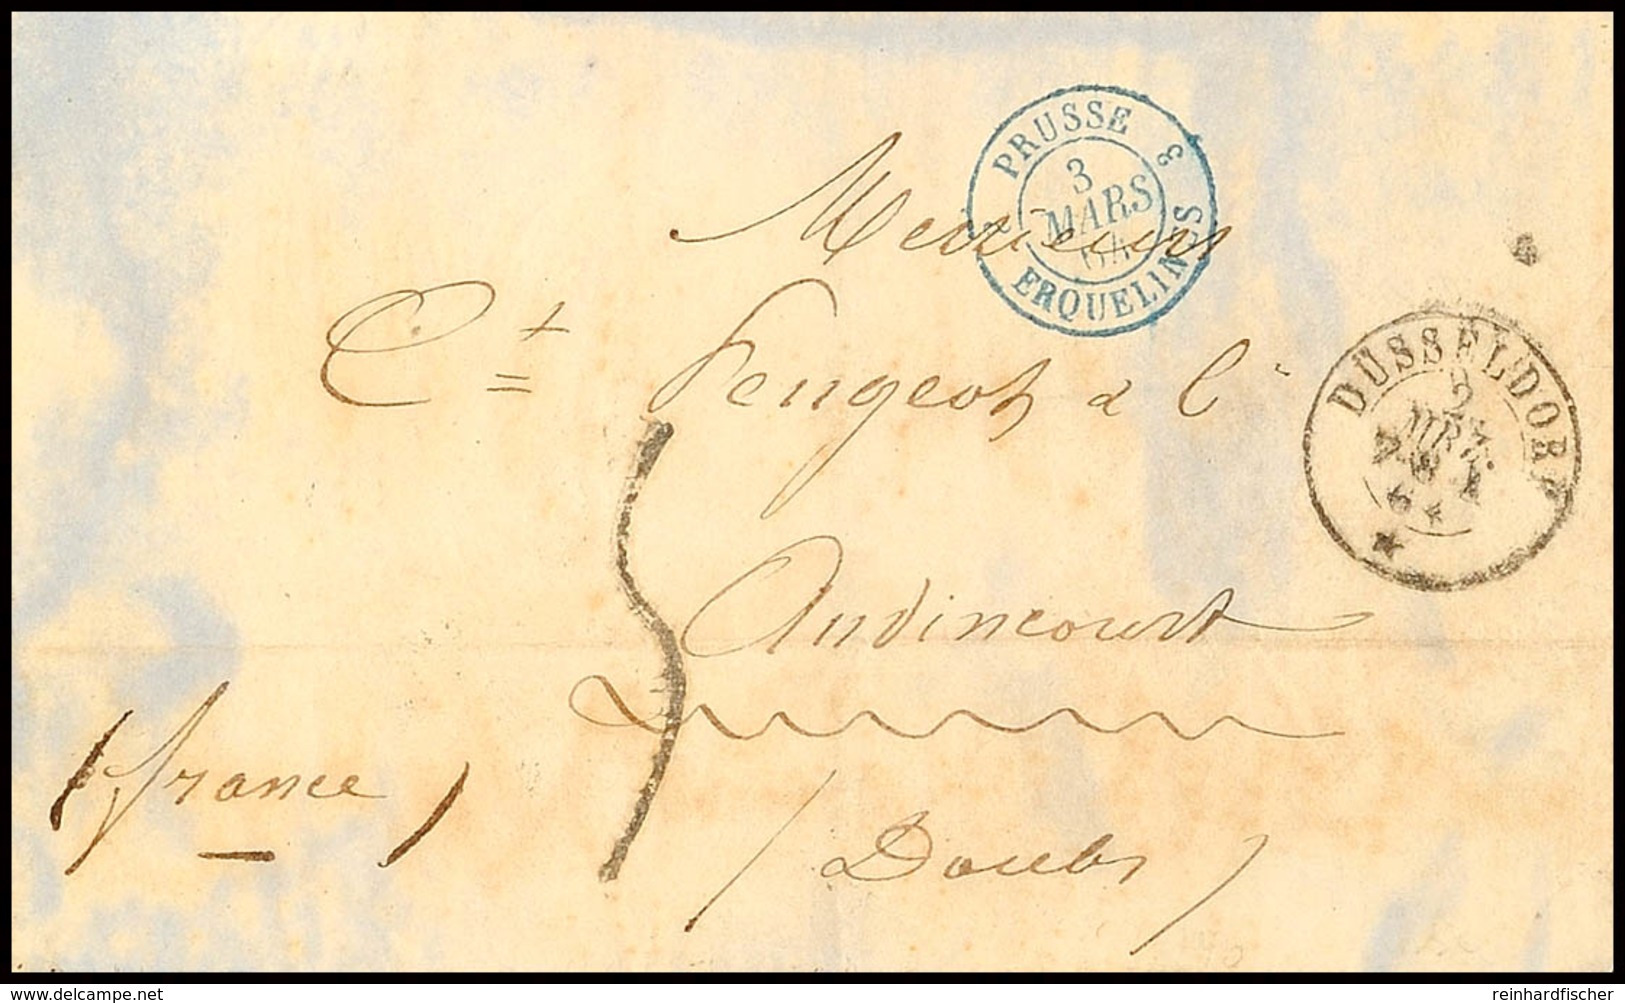 PRUSSE 3
3
MARS
64
ERQUELINES
Messieurs
Ct Peugeot & C
DÜSSELDORF
2
MRZ
Audincourt
(france)
(Doubs)
delcampe.net
reinhardfischer